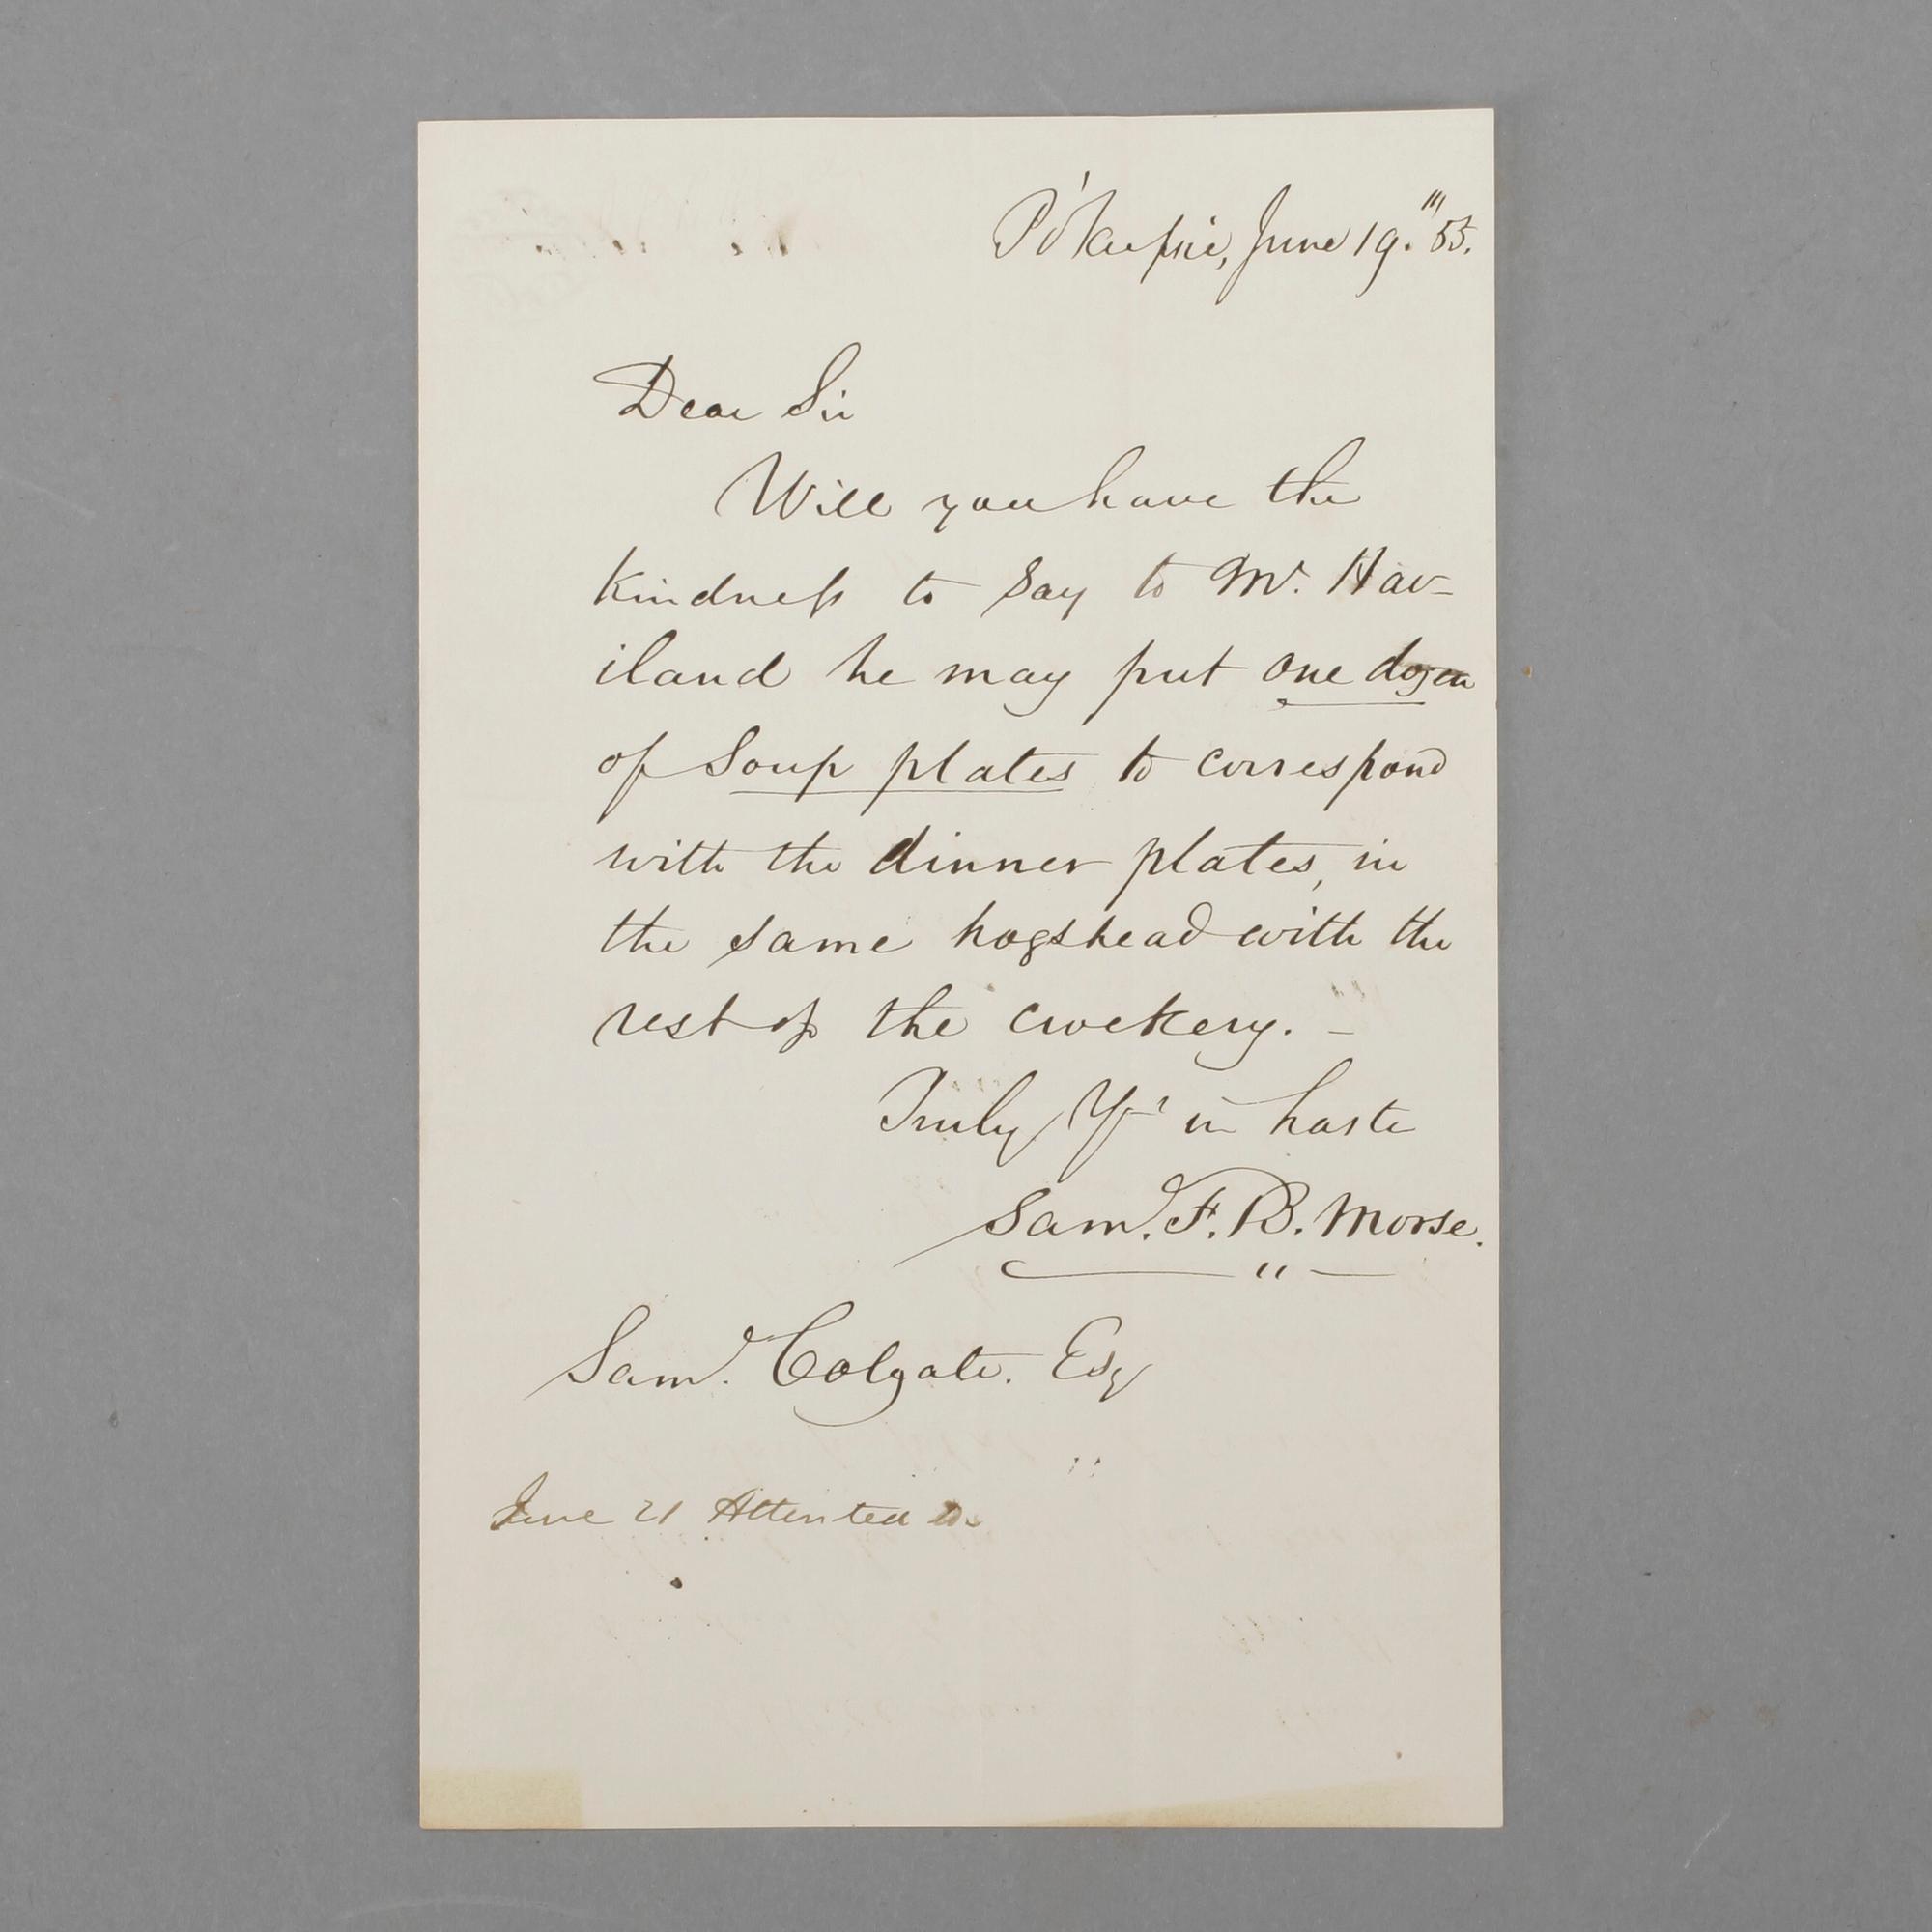 Po'keepsie, June 19. '''55.
Dear Sir
Will you have the
kindness to say to Mr. Hav-
iland he may put one dozen
of Soup plates to correspond
with the dinner plates, in
the same hogshead with the
rest of the crockery. –
Truly Yrs in haste
Saml. F. B. Morse.
Saml. Colgate. Esq
June 21 Attented to